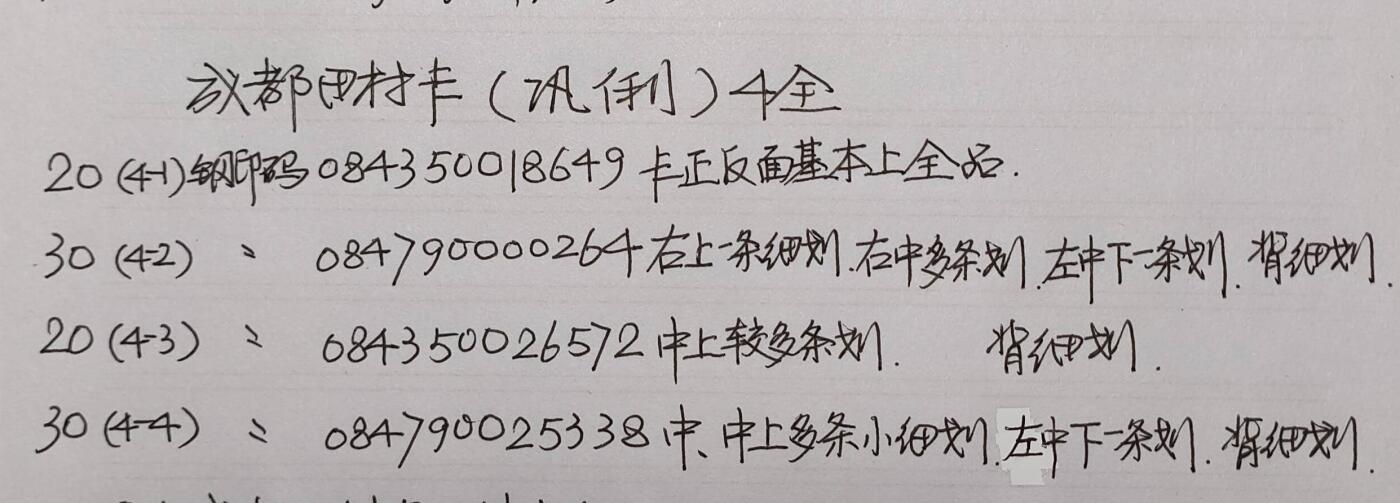 成都田村卡（巩俐）4全
20（4-1）钢印码084350018649卡正反面基本上全品.
30（4-2）〃 084790000264右上一条细划.右中多条划.左中下一条划.背细划.
20（4-3）〃 084350026572中上较多条划. 背细划.
30（4-4）〃 084790025338中、中上多条小细划.左中下一条划.背细划.